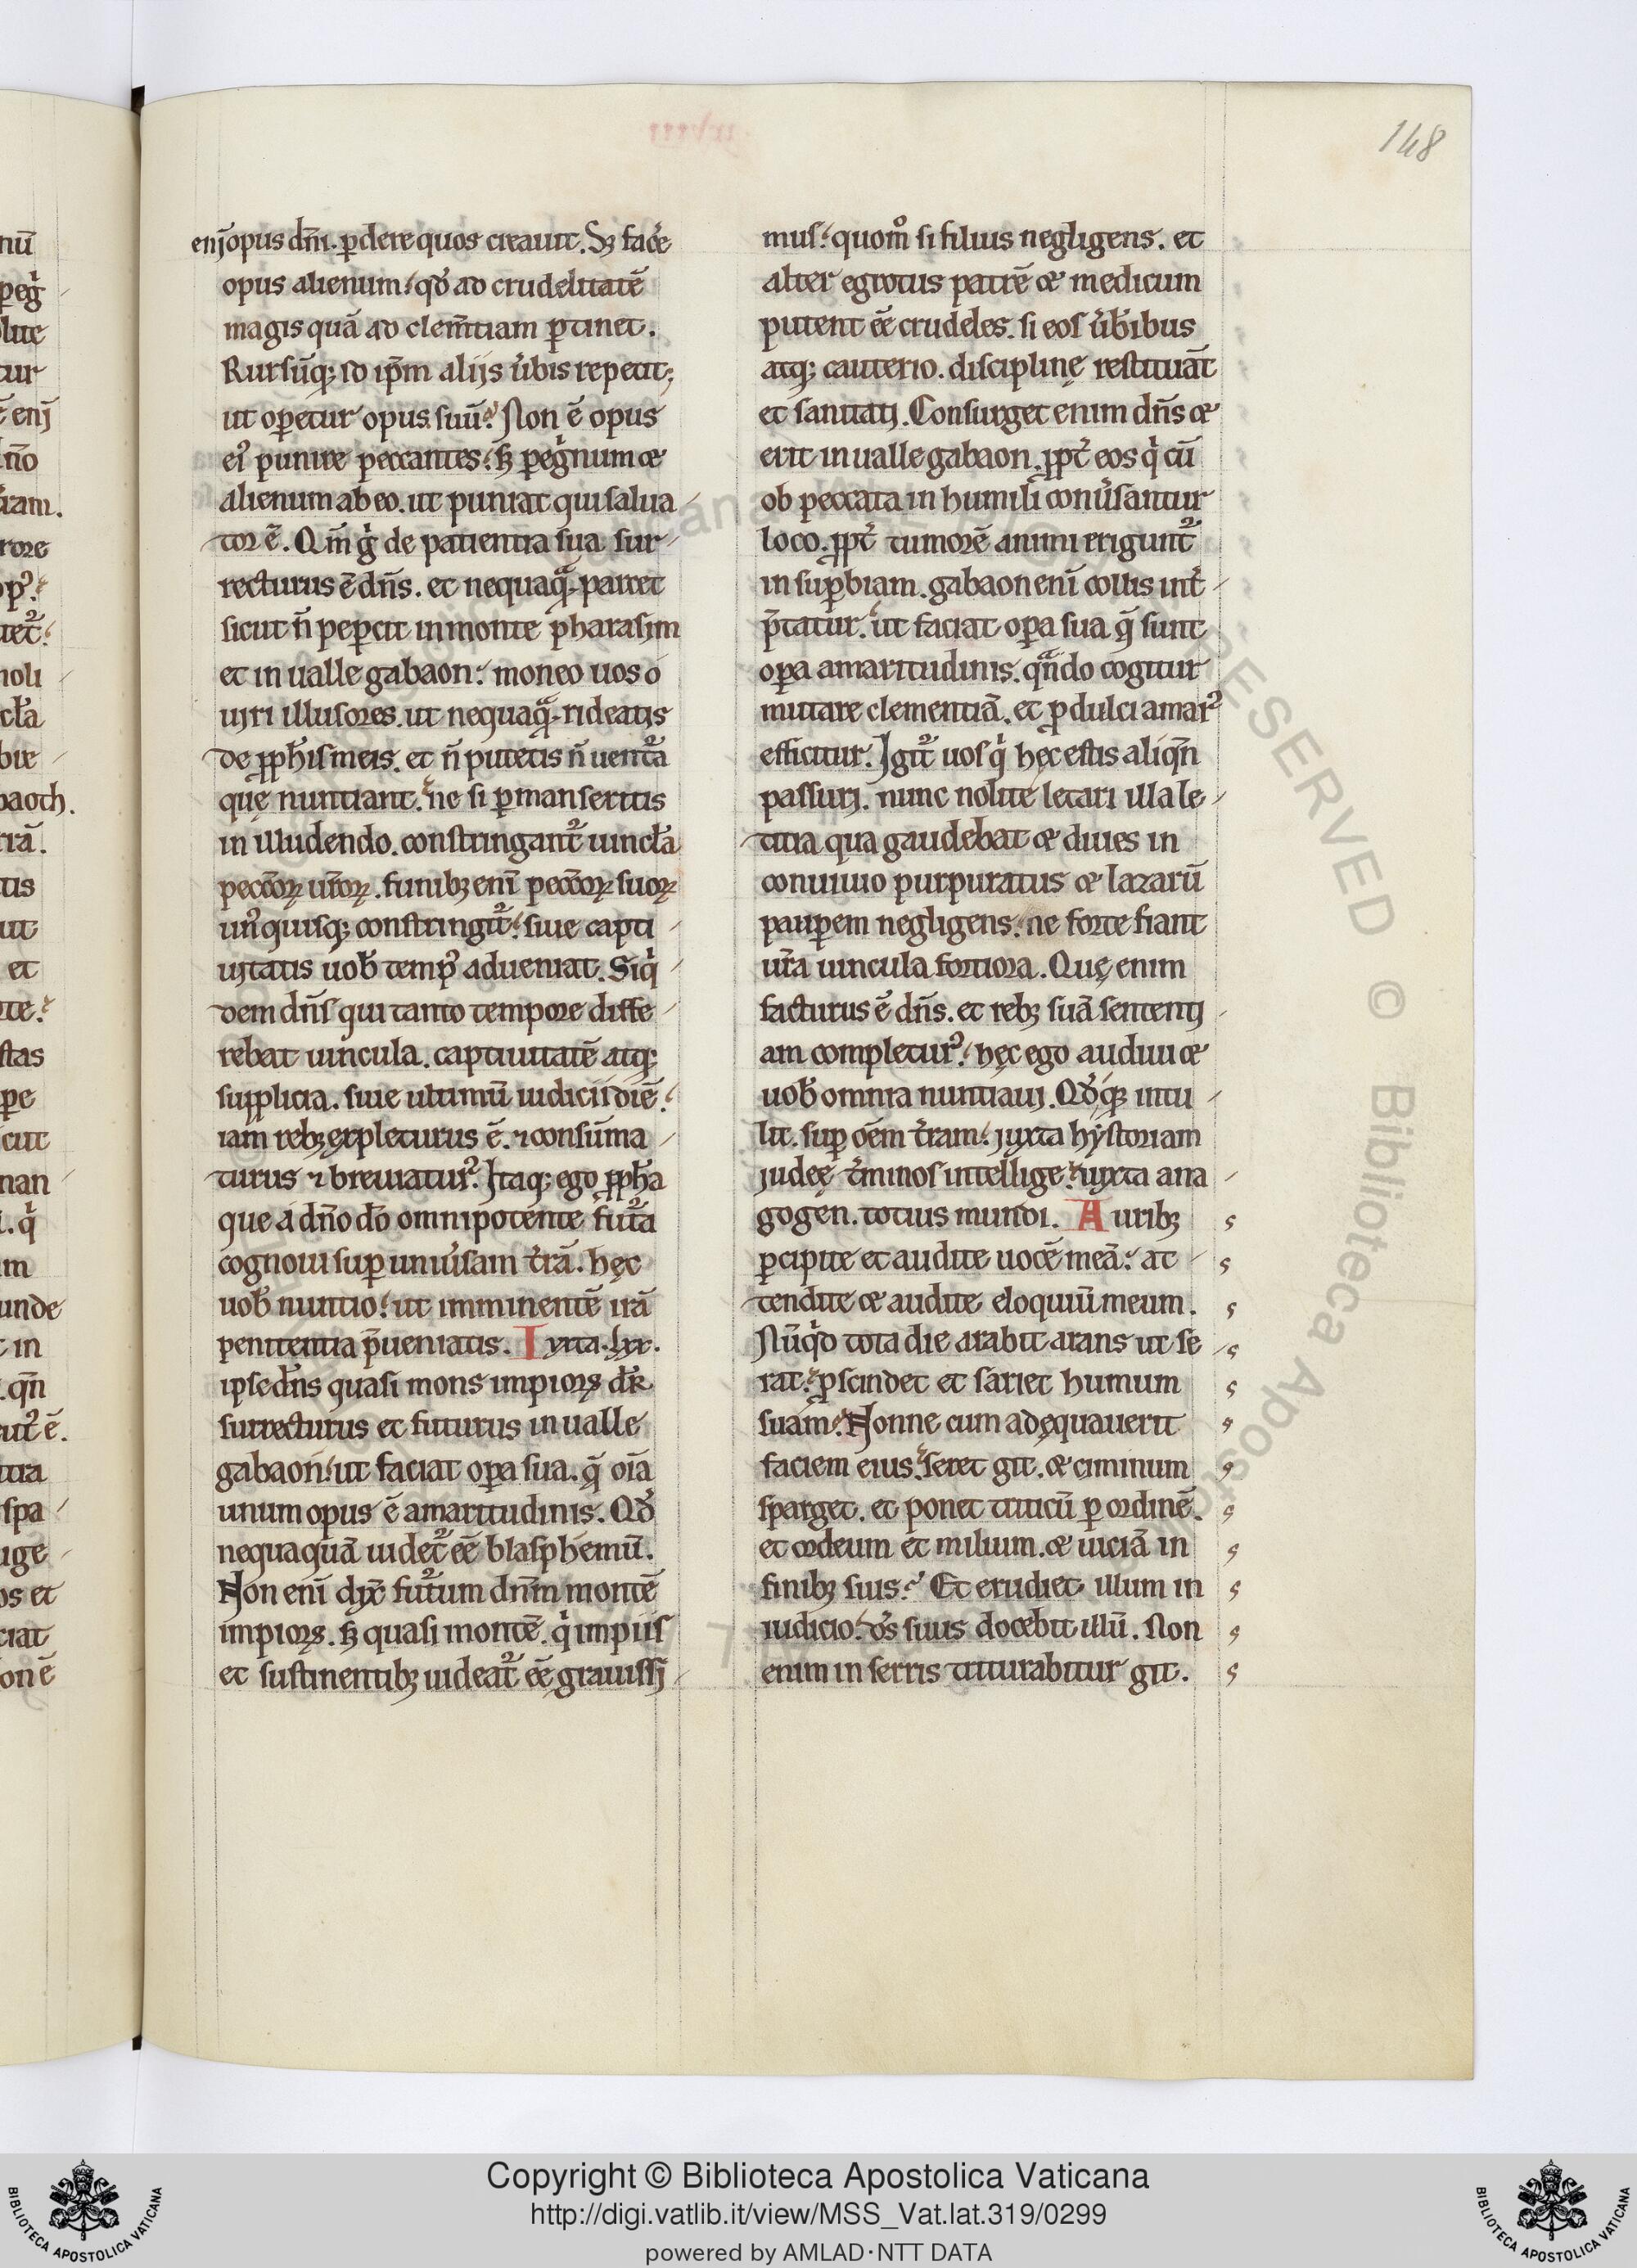 148
enı̄ opus dn̄ı. ꝑdere quos creauit. Sꝫ facͤe
opus alienum. qd̓ ad crudelitatē
magis quā ad clem̄tiam ꝑtinet.
Rursūqꝫ ıd ip̄m alijs u̓bis repetit;
ut oꝑetur opus suū. Non ē opus
ei᷒ punire peccantes. sꝫ ꝑegͥnum et
alienum ab eo. ut puniat qui salua
tor ē. Qm̄ gͥ de patientia sua sur
recturus ē dn̄s. et nequaqͣ parcet
sicut n̄ peꝑcit in monte pharasim
et in ualle gabaon. moneo uos o
uiri illusores. ut nequaqͣ rideatis
de ꝓph̓is meis. et n̄ putetis n̄ uentͣa
quę nuntiant. ne si ꝑmanseritis
in illudendo. constringant᷑ uincl̓a
pecco᷑ꝝ ur̄oꝝ. funibꝫ enī pecco᷑ꝝ suoꝝ
un᷒quisqꝫ constringit᷑. siue capti
uitatis uob̓ temp᷒ adueniat. Siqͥ
dem dn̄s qui tanto tempore diffe
rebat uincula. captiuitatē atqꝫ
supplicia. siue ultimū iudicii diē.
iam rebꝫ expleturus ē. ⁊ consūma
turus ⁊ breuiatur᷒. Itaqꝫ ego ꝓph̓a
que a dn̄o do̅ omnipotente fut᷑a
cognoui suꝑ uniu̓sam tr̓ā. hęc
uob̓ nuntio. ut imminentē irā
penitentia p̄ueniatis. Iuxta .lxx.
ipse dn̄s quasi mons impioꝝ dr̄
surrecturus et futurus in ualle
gabaon. ut faciat oꝑa sua. q̄ oīa
unum opus ē amaritudinis. Qd̓
nequaquā uidet᷑ eē blasphemū.
Non enī dix̄ fut᷑um dn̄m montē
impioꝝ. sꝫ quasi montē. qͥ impiis
et sustinentibꝫ uideat᷑ eē grauissi
mus. quom̊ si filius negligens. et
alter egrotus patrē et medicum
putent eē crudeles. si eos u̓beribus
atqꝫ cauterio. disciplinę restituāt
et sanitati. Consurget enim dn̄s et
erit in ualle gabaon. ꝓpt̓ eos qͥ cū
ob peccata in humili conu̓santur
loco. ꝓpt̓ tumorē animi erigunt᷑
in suꝑbiam. gabaon enī collis int̓
p̄tatur. ut faciat oꝑa sua q̄ sunt
oꝑa amaritudinis. qn̄do cogitur
mutare clementiā. et ꝓ dulci amar᷒
efficitur. Igit᷑ uos qͥ hęc estis aliqn̄
passuri. nunc nolite letari illa le
titia qua gaudebat et diues in
conuiuio purpuratus et lazarū
pauꝑem negligens. ne forte fiant
ur̄a uincula fortiora. Quę enim
facturus ē dn̄s. et rebꝫ suā sententi
am completur᷒. hęc ego audiui et
uob̓ omnia nuntiaui. Qd̓qꝫ intu
lit. suꝑ oēm tr̓ram. iuxta hystoriam
iudeę t̓minos intellige. iuxta ana
gogen. totius mundi. Auribꝫ
ꝑcipite et audite uocē meā. at
tendite et audite eloquiū meum.
Nūqͥd tota die arabit arans ut se
rat. ꝓscindet et sariet humum
suam. Nonne cum adęquauerit
faciem eius. seret git. et ciminum
sparget. et ponet triticū ꝑ ordinē.
et ordeum et milium. et uiciā in
finibꝫ suis. Et erudiet illum in
iudicio. ds̄ suus docebit illū. Non
enim in serris triturabitur git.
Copyright © Biblioteca Apostolica Vaticana
http://digi.vatlib.it/view/MSS_Vat.lat.319/0299
powered by AMLAD·NTT DATA